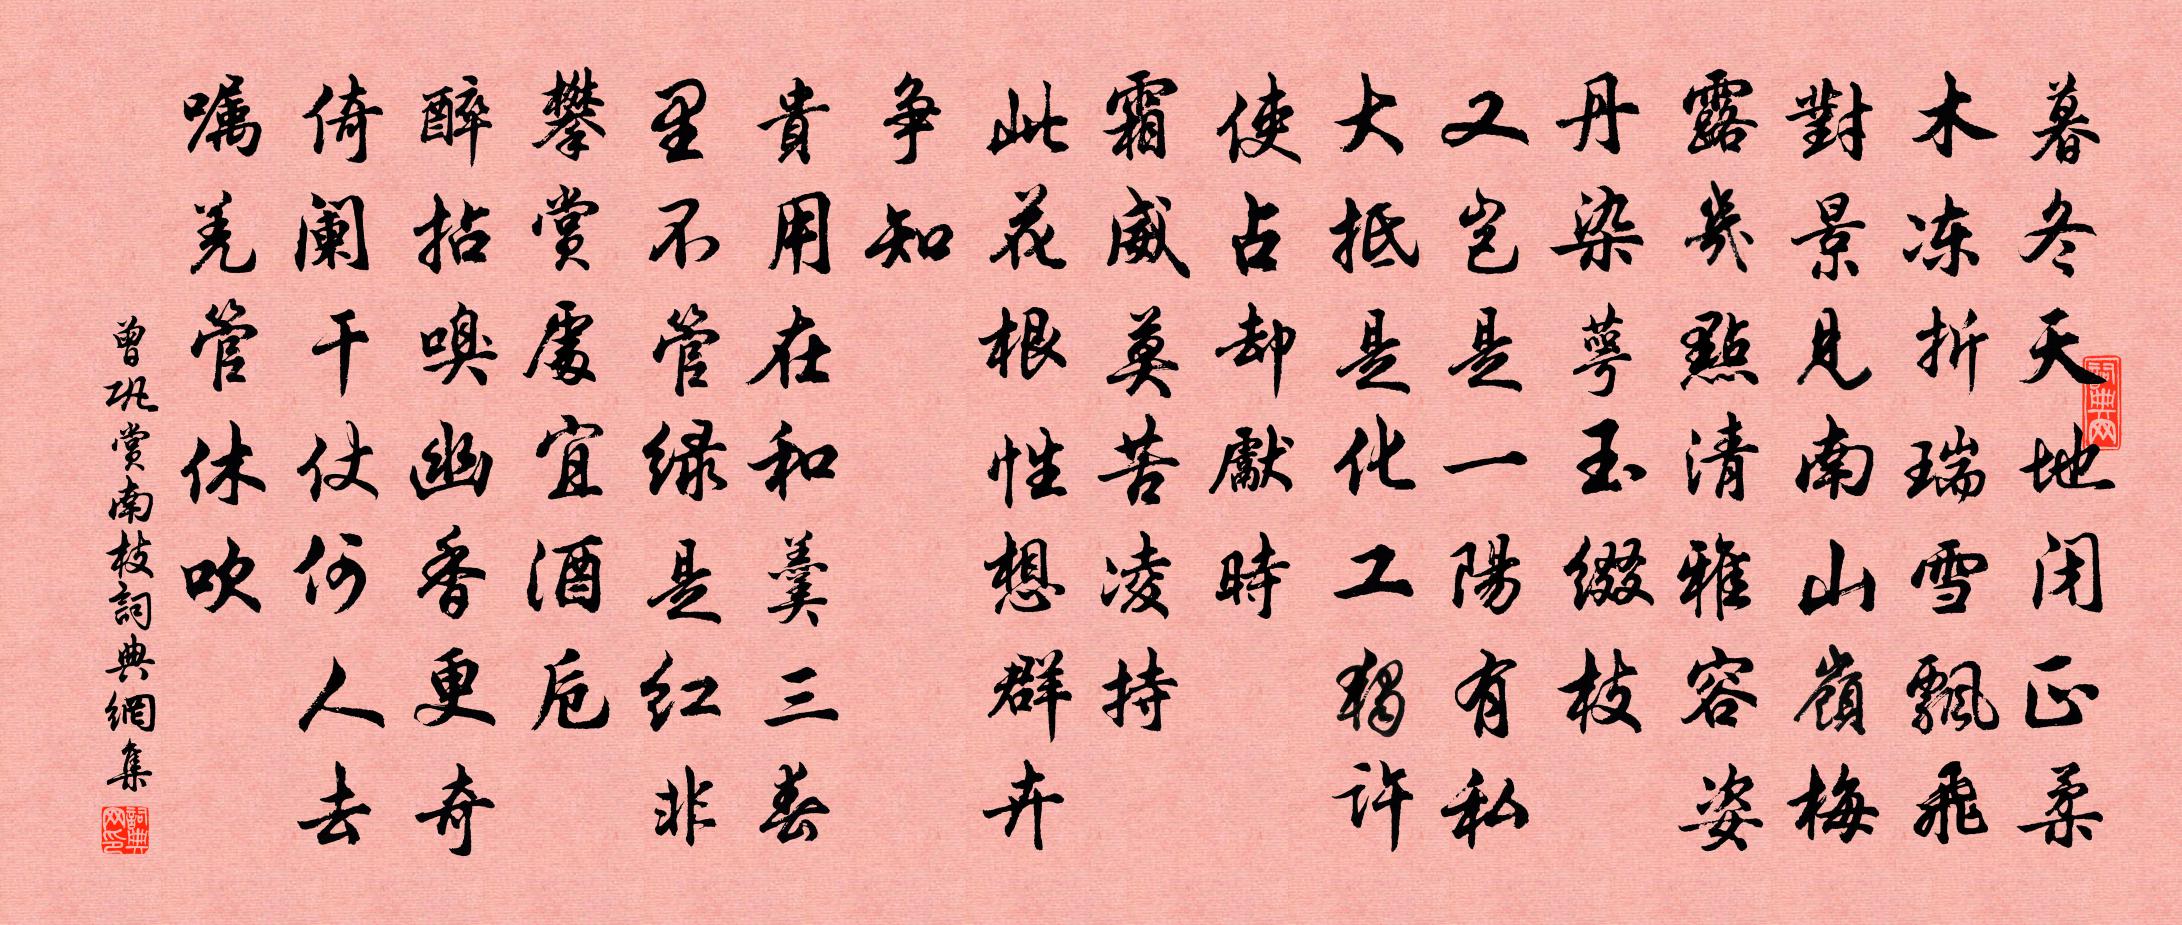 暮冬天地闭正柔
木冻折瑞雪飄飛
對景見南山嶺梅
露幾點清雅容姿
丹染萼玉缀枝
又岂是一陽有私
大抵是化工独许
使占却獻時
霜威莫苦凌持
此花根性想群卉
争知
貴用在和羹三春
里不管绿是红非
攀赏處宜酒卮
醉拈嗅幽香更奇
倚阑干仗何人去
嘱羌管休吹
曾巩赏南枝詞典網集
詞典网
詞典网印